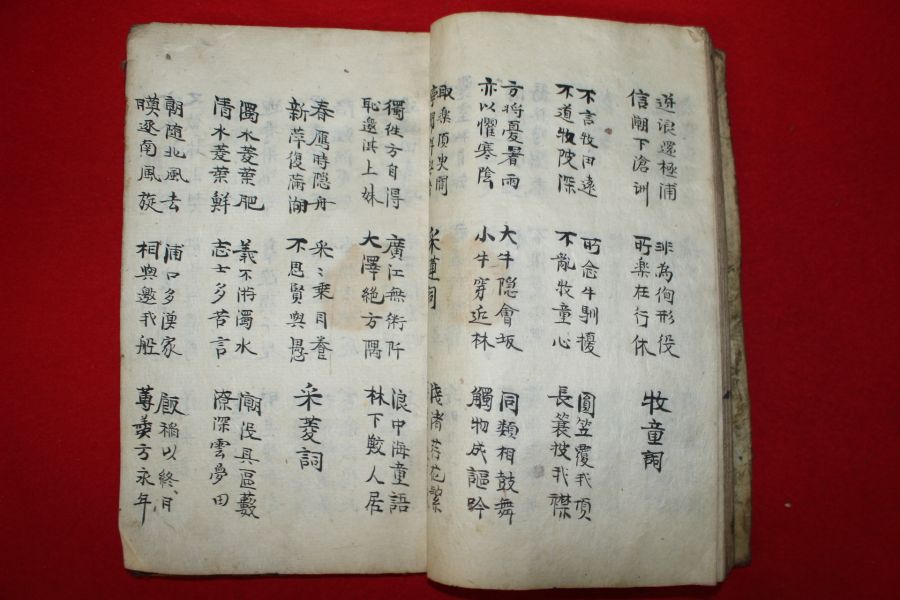 逆浪還極浦
信潮下滄洲
非為徇形役
所樂在行休
牧童詞
不言牧田遠
不道牧陂深
所念牛馴擾
不亂牧童心
圓笠覆我頂
長蓑披我襟
方將憂暑雨
亦以懼寒陰
大牛隱會坂
小牛穿近林
同類相鼓舞
觸物成謳吟
取樂須臾間
采蓮詞
淺渚荇花繁
獨往方自得
恥邀淇上姝
廣江無術阡
大澤絕方隅
浪中海童語
林下鮫人居
春雁時隱舟
新萍復滿湖
采〻乘日暮
不思賢與愚
采菱詞
濁水菱葉肥
清水菱葉鮮
義不游濁水
志士多苦言
潮沒具區藪
潦深雲夢田
朝隨北風去
暮逐南風旋
浦口多漁家
相與邀我船
飯稻以終日
蓴羹方永年